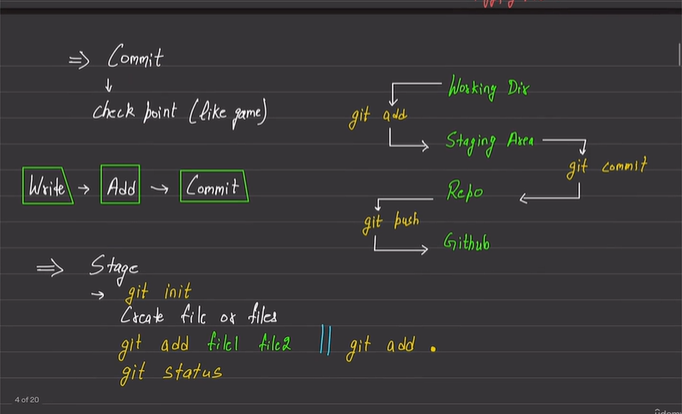 ⇒ Commit
↓
check point (like game)
Write → Add → Commit
Working Dir
git add
Staging Area
git commit
Repo
git push
Github
⇒ Stage
→ git init
Create file or files
git add file1 file2 || git add .
git status
4 of 20